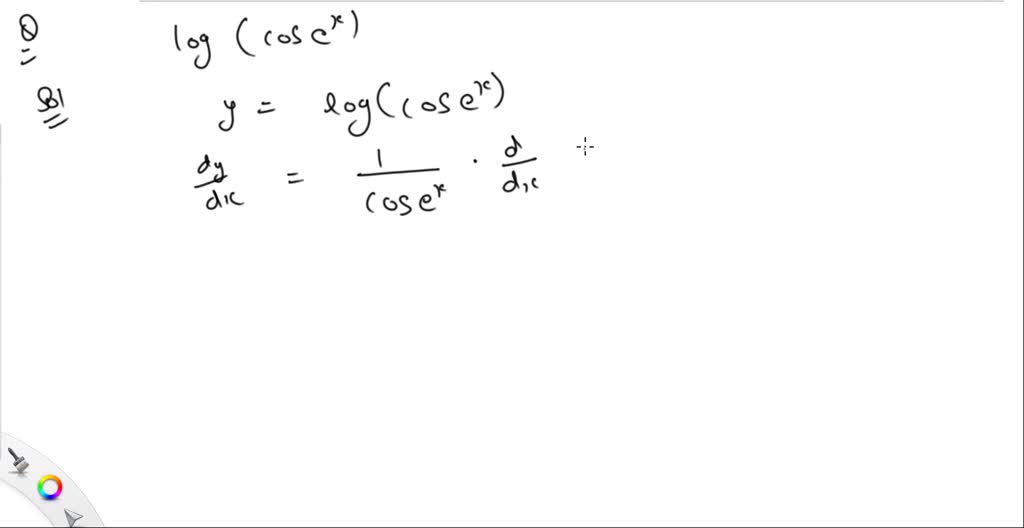 Q log (cos e^x)
Sol y = log(cos e^x)
dy/dx = 1/cos e^x · d/dx